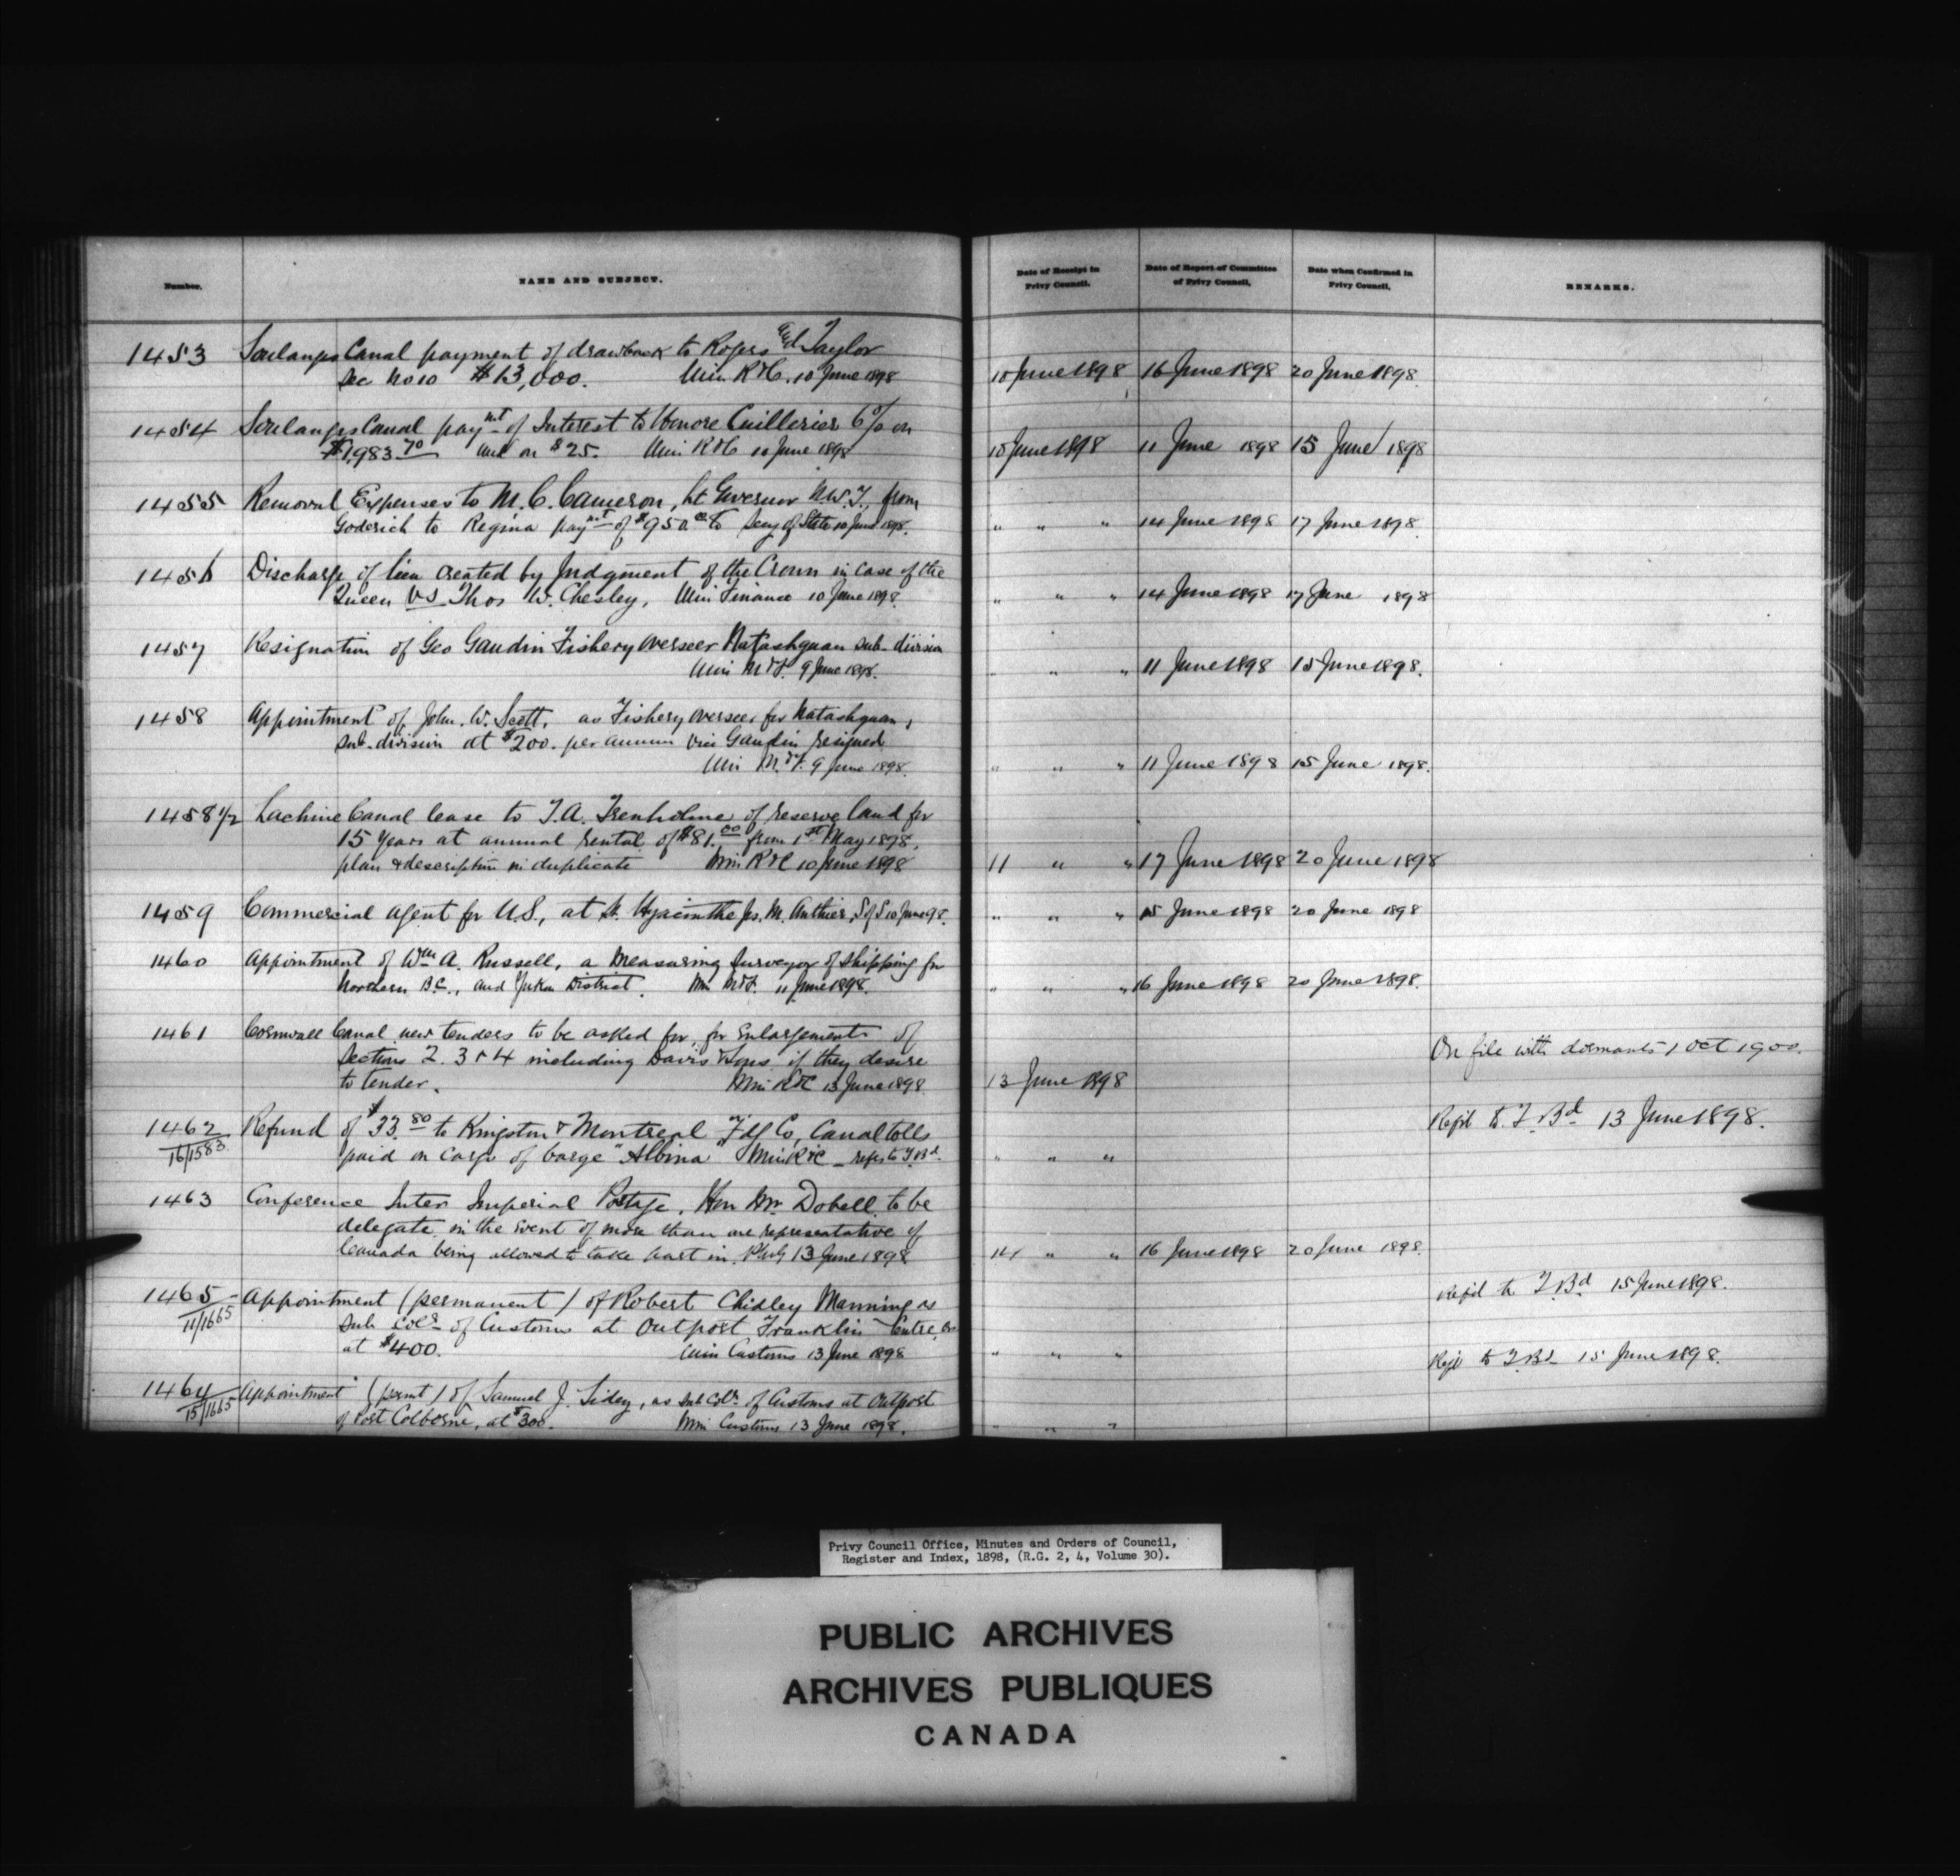 Number.
NAME AND SUBJECT.
Date of Receipt in Privy Council.
Date of Report of Committee of Privy Council.
Date when Confirmed in Privy Council.
REMARKS.
1453 Soulanges Canal payment of drawback to Rogers and Taylor
Sec No 10 $13,000. Min R&C. 10 June 1898
10 June 1898 16 June 1898 20 June 1898.
1454 Soulanges Canal paymt of Interest to Honore Cuillerier 6% on
$1,983.70 and on $25. Min R&C 10 June 1898
10 June 1898 11 June 1898 15 June 1898
1455 Removal Expenses to M. C. Cameron, Lt Governor N.W.T., from
Goderich to Regina paymt of $950.00 to Secy of State 10 June 1898.
" " " 14 June 1898 17 June 1898.
1456 Discharge of lien created by Judgment of the Crown in case of the
Queen vs Thos W. Chesley, Min Finance 10 June 1898.
" " " 14 June 1898 17 June 1898
1457 Resignation of Geo Gaudin Fishery Overseer Natashquan sub-division
Min M&F. 9 June 1898.
" " " 11 June 1898 15 June 1898.
1458 Appointment of John. W. Scott. as Fishery Overseer for Natashquan,
sub-division at $200. per annum vice Gaudin resigned
Min M.&F. 9 June 1898.
" " " 11 June 1898 15 June 1898.
1458 1/2 Lachine Canal lease to T.A. Trenholme of reserve land for
15 Years at annual rental of $81.00 from 1st May 1898,
plan & description in duplicate Min R&C 10 June 1898
11 " " 17 June 1898 20 June 1898
1459 Commercial Agent for U.S., at St. Hyacinthe Js. M. Authier, S of S 10 June 98.
" " " 15 June 1898 20 June 1898
1460 Appointment of Wm A. Russell, a Measuring Surveyor of shipping for
Northern B.C., and Yukon District. Min M&F. 11 June 1898.
" " " 16 June 1898 20 June 1898.
1461 Cornwall Canal new tenders to be asked for, for Enlargement of
Sections 2. 3 & 4 including Davis & Sons if they desire
to tender. Min R&C 13 June 1898
13 June 1898
On file with dormants 1 Oct 1900.
1462 Refund of $33.80 to Kingston & Montreal Fdg Co, Canal tolls
16/1583 paid on cargo of barge "Albina" Min R&C - refs to T.Bd.
" " "
Refd to T. Bd 13 June 1898.
1463 Conference Inter Imperial Postage. Hon Mr. Dobell to be
delegate in the event of more than one representative of
Canada being allowed to take part in. PMG 13 June 1898
14 " " 16 June 1898 20 June 1898.
1465 Appointment (permanent) of Robert Chidley Manning as
11/1665 Sub Colr of Customs at Outpost Franklin Centre,
at $400. Min Customs 13 June 1898
" " "
Refd to T.Bd 15 June 1898.
1464 Appointment (permt) of Samuel J. Sidey, as Sub Colr of Customs at Outpost
15/1665 of Port Colborne, at $300. Min Customs 13 June 1898.
" " "
Refd to T.Bd 15 June 1898.
Privy Council Office, Minutes and Orders of Council,
Register and Index, 1898, (R.G. 2, 4, Volume 30).
PUBLIC ARCHIVES
ARCHIVES PUBLIQUES
CANADA